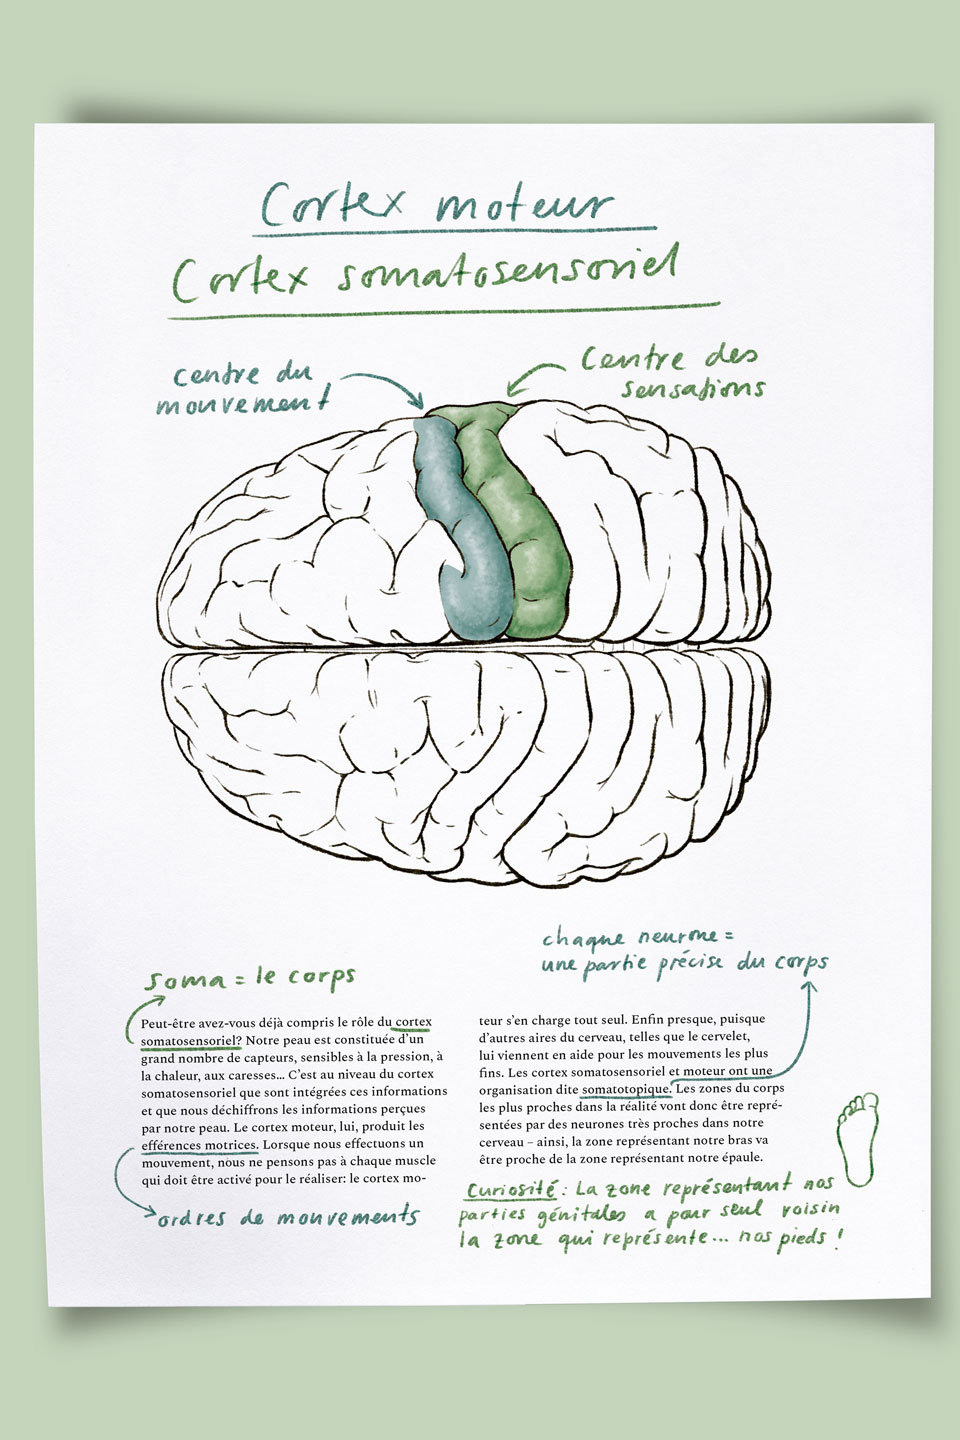 Cortex moteur
Cortex somatosensoriel
centre du
mouvement
Centre des
sensations
chaque neurone =
une partie précise du corps
soma = le corps
Peut-être avez-vous déjà compris le rôle du cortex
somatosensoriel? Notre peau est constituée d'un
grand nombre de capteurs, sensibles à la pression, à
la chaleur, aux caresses... C'est au niveau du cortex
somatosensoriel que sont intégrées ces informations
et que nous déchiffrons les informations perçues
par notre peau. Le cortex moteur, lui, produit les
efférences motrices. Lorsque nous effectuons un
mouvement, nous ne pensons pas à chaque muscle
qui doit être activé pour le réaliser: le cortex mo-
ordres de mouvements
teur s'en charge tout seul. Enfin presque, puisque
d'autres aires du cerveau, telles que le cervelet,
lui viennent en aide pour les mouvements les plus
fins. Les cortex somatosensoriel et moteur ont une
organisation dite somatotopique. Les zones du corps
les plus proches dans la réalité vont donc être repré-
sentées par des neurones très proches dans notre
cerveau – ainsi, la zone représentant notre bras va
être proche de la zone représentant notre épaule.
Curiosité : La zone représentant nos
parties génitales a pour seul voisin
la zone qui représente... nos pieds !